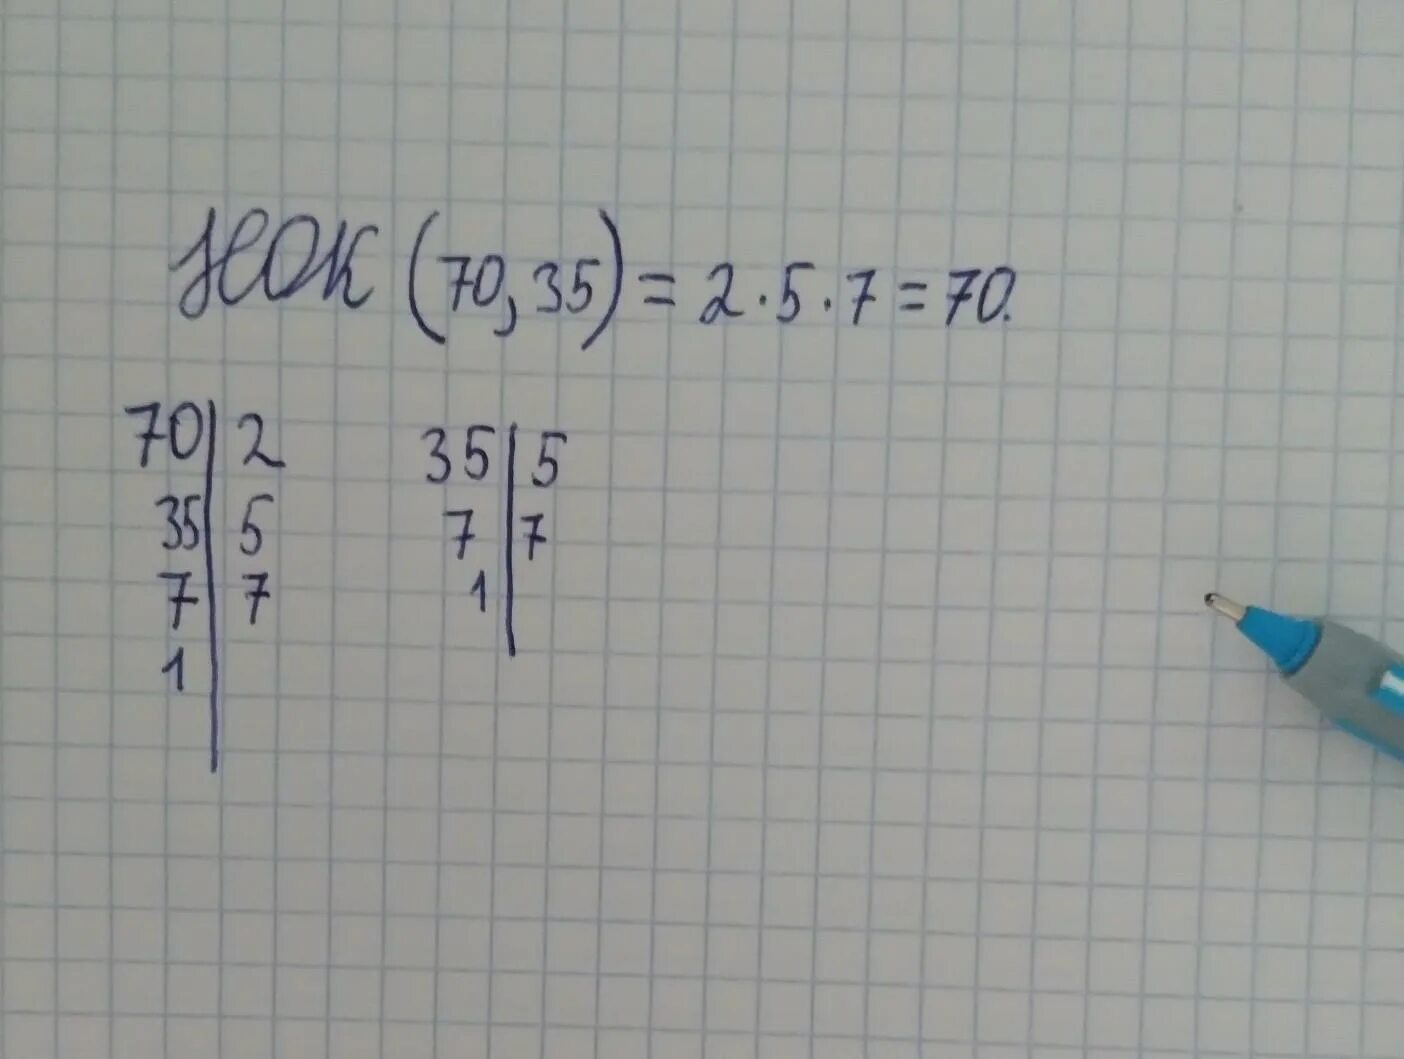 НОК (70, 35) = 2 · 5 · 7 = 70.
70 | 2
35 | 5
7 | 7
1 |
35 | 5
7 | 7
1 |